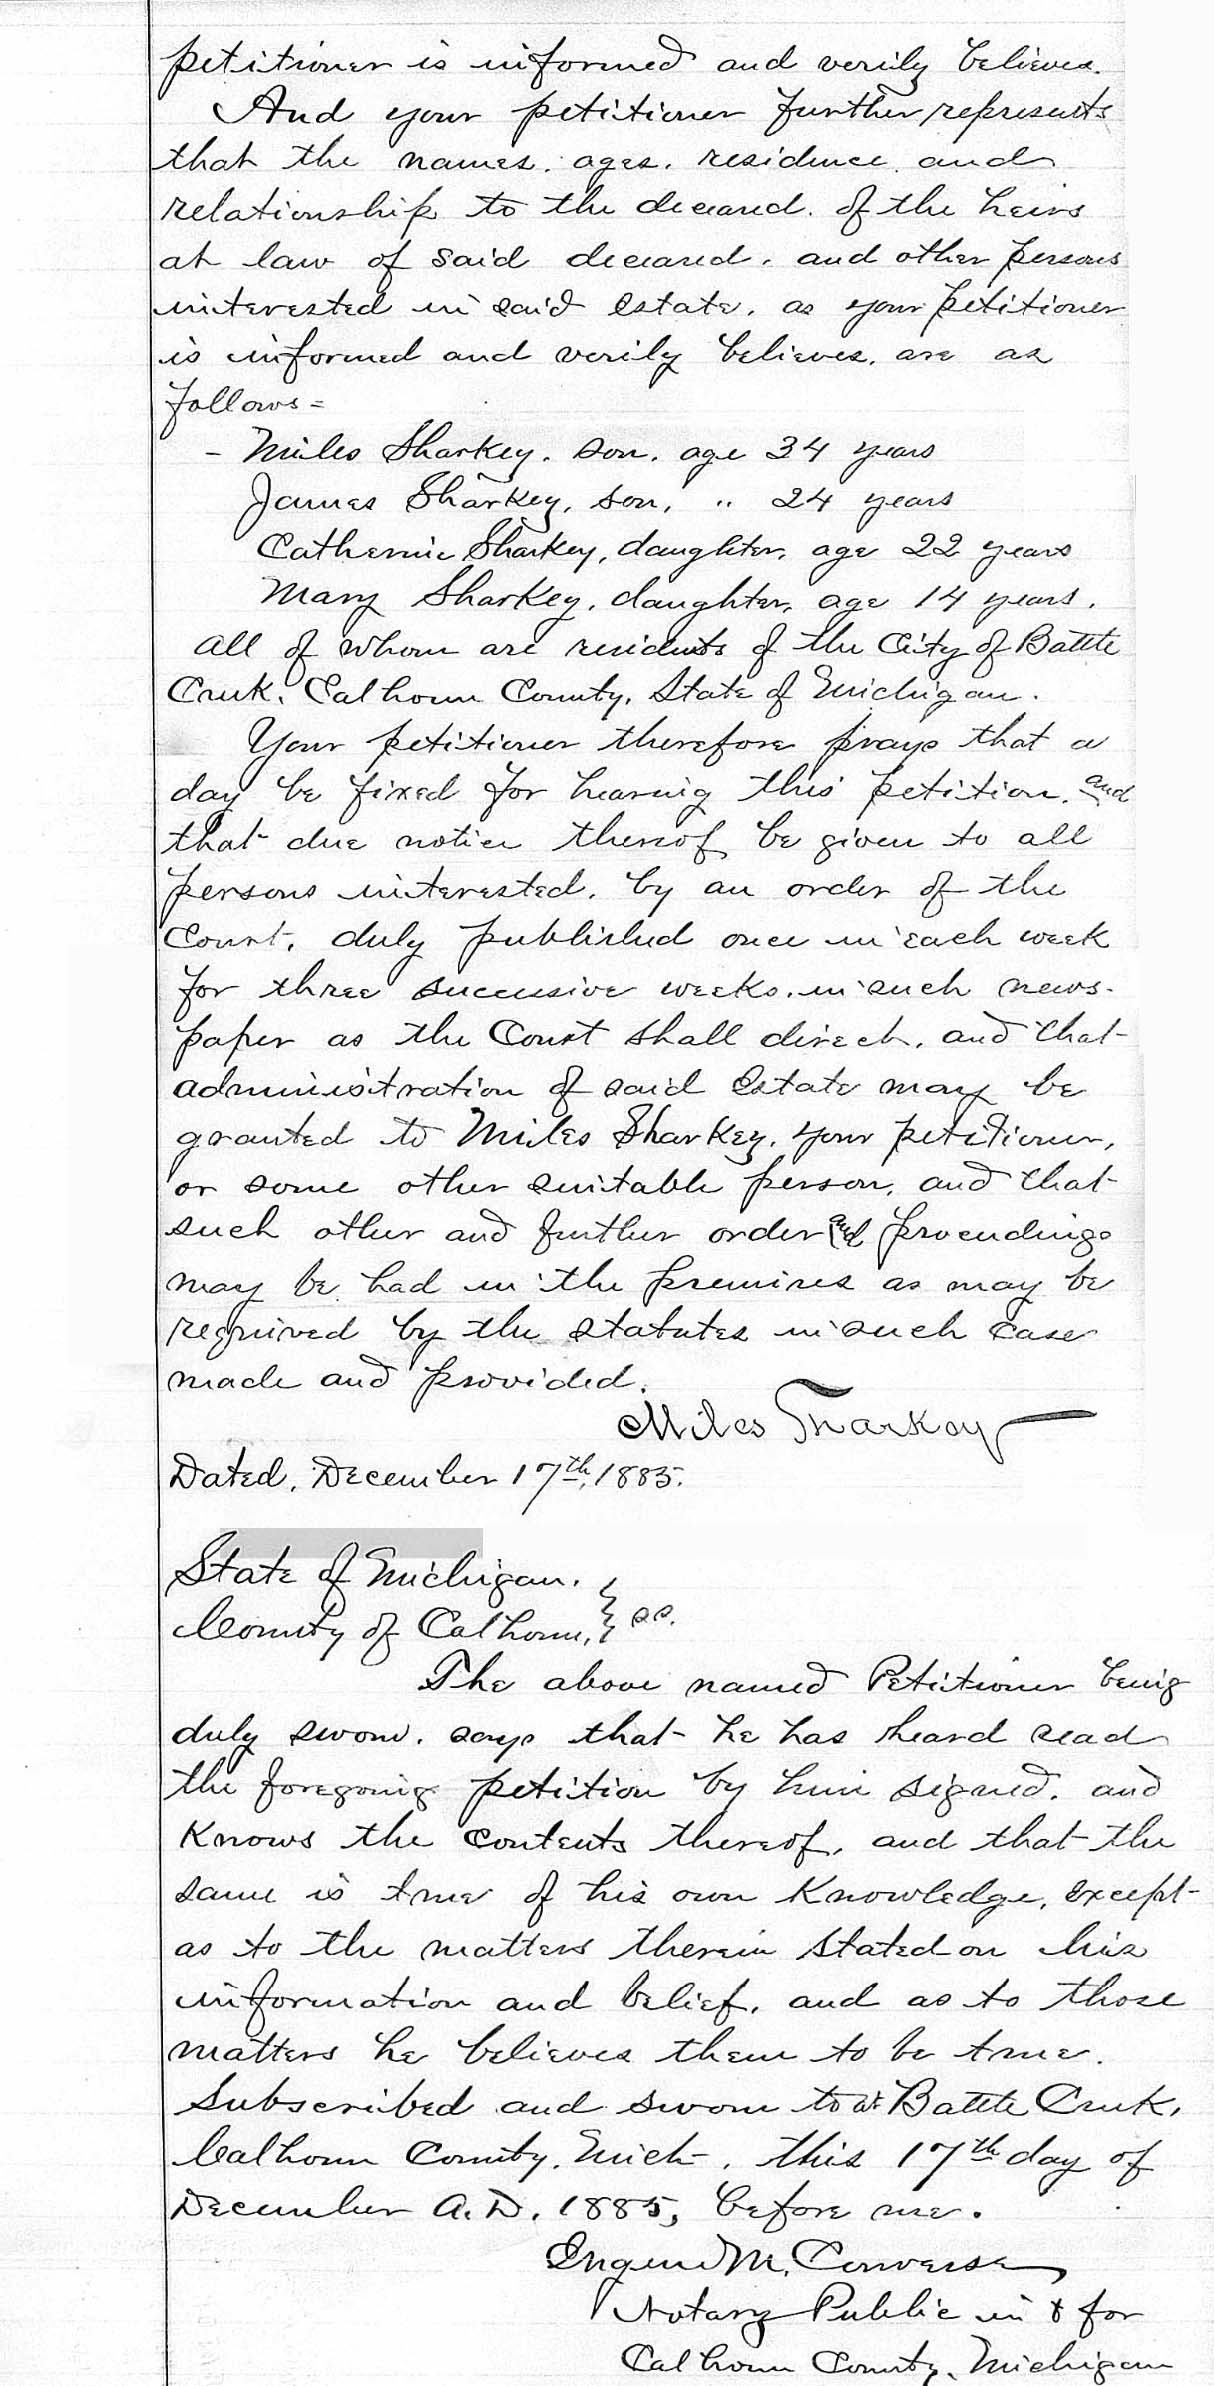 petitioner is informed and verily believes.
And your petitioner further represents
that the names. ages. residence and
relationship to the deceased. of the heirs
at law of said deceased. and other persons
interested in said estate. as your petitioner
is informed and verily believes. are as
follows =
- Miles Sharkey. son. age 34 years
James Sharkey, son, " 24 years
Catherine Sharkey, daughter, age 22 years
Mary Sharkey, daughter, age 14 years.
all of whom are residents of the City of Battle
Creek, Calhoun County, State of Michigan.
Your petitioner therefore prays that a
day be fixed for hearing this petition. and
that due notice thereof be given to all
persons interested. by an order of the
Court, duly published once in each week
for three successive weeks. in such news-
paper as the Court shall direct. and that
administration of said Estate may be
granted to Miles Sharkey. your petitioner,
or some other suitable person, and that
such other and further order and proceedings
may be had in the premises as may be
required by the statutes in such case
made and provided.
Miles Sharkey
Dated, December 17th, 1885.
State of Michigan. }
County of Calhoun, } ss.
The above named Petitioner being
duly sworn. says that he has heard read
the foregoing petition by him signed. and
knows the contents thereof, and that the
same is true of his own knowledge, except
as to the matters therein stated on his
information and belief. and as to those
matters he believes them to be true.
Subscribed and sworn to at Battle Creek,
Calhoun County, Mich. this 17th day of
December A.D. 1885, before me.
Eugene M. Converse
Notary Public in & for
Calhoun County, Michigan